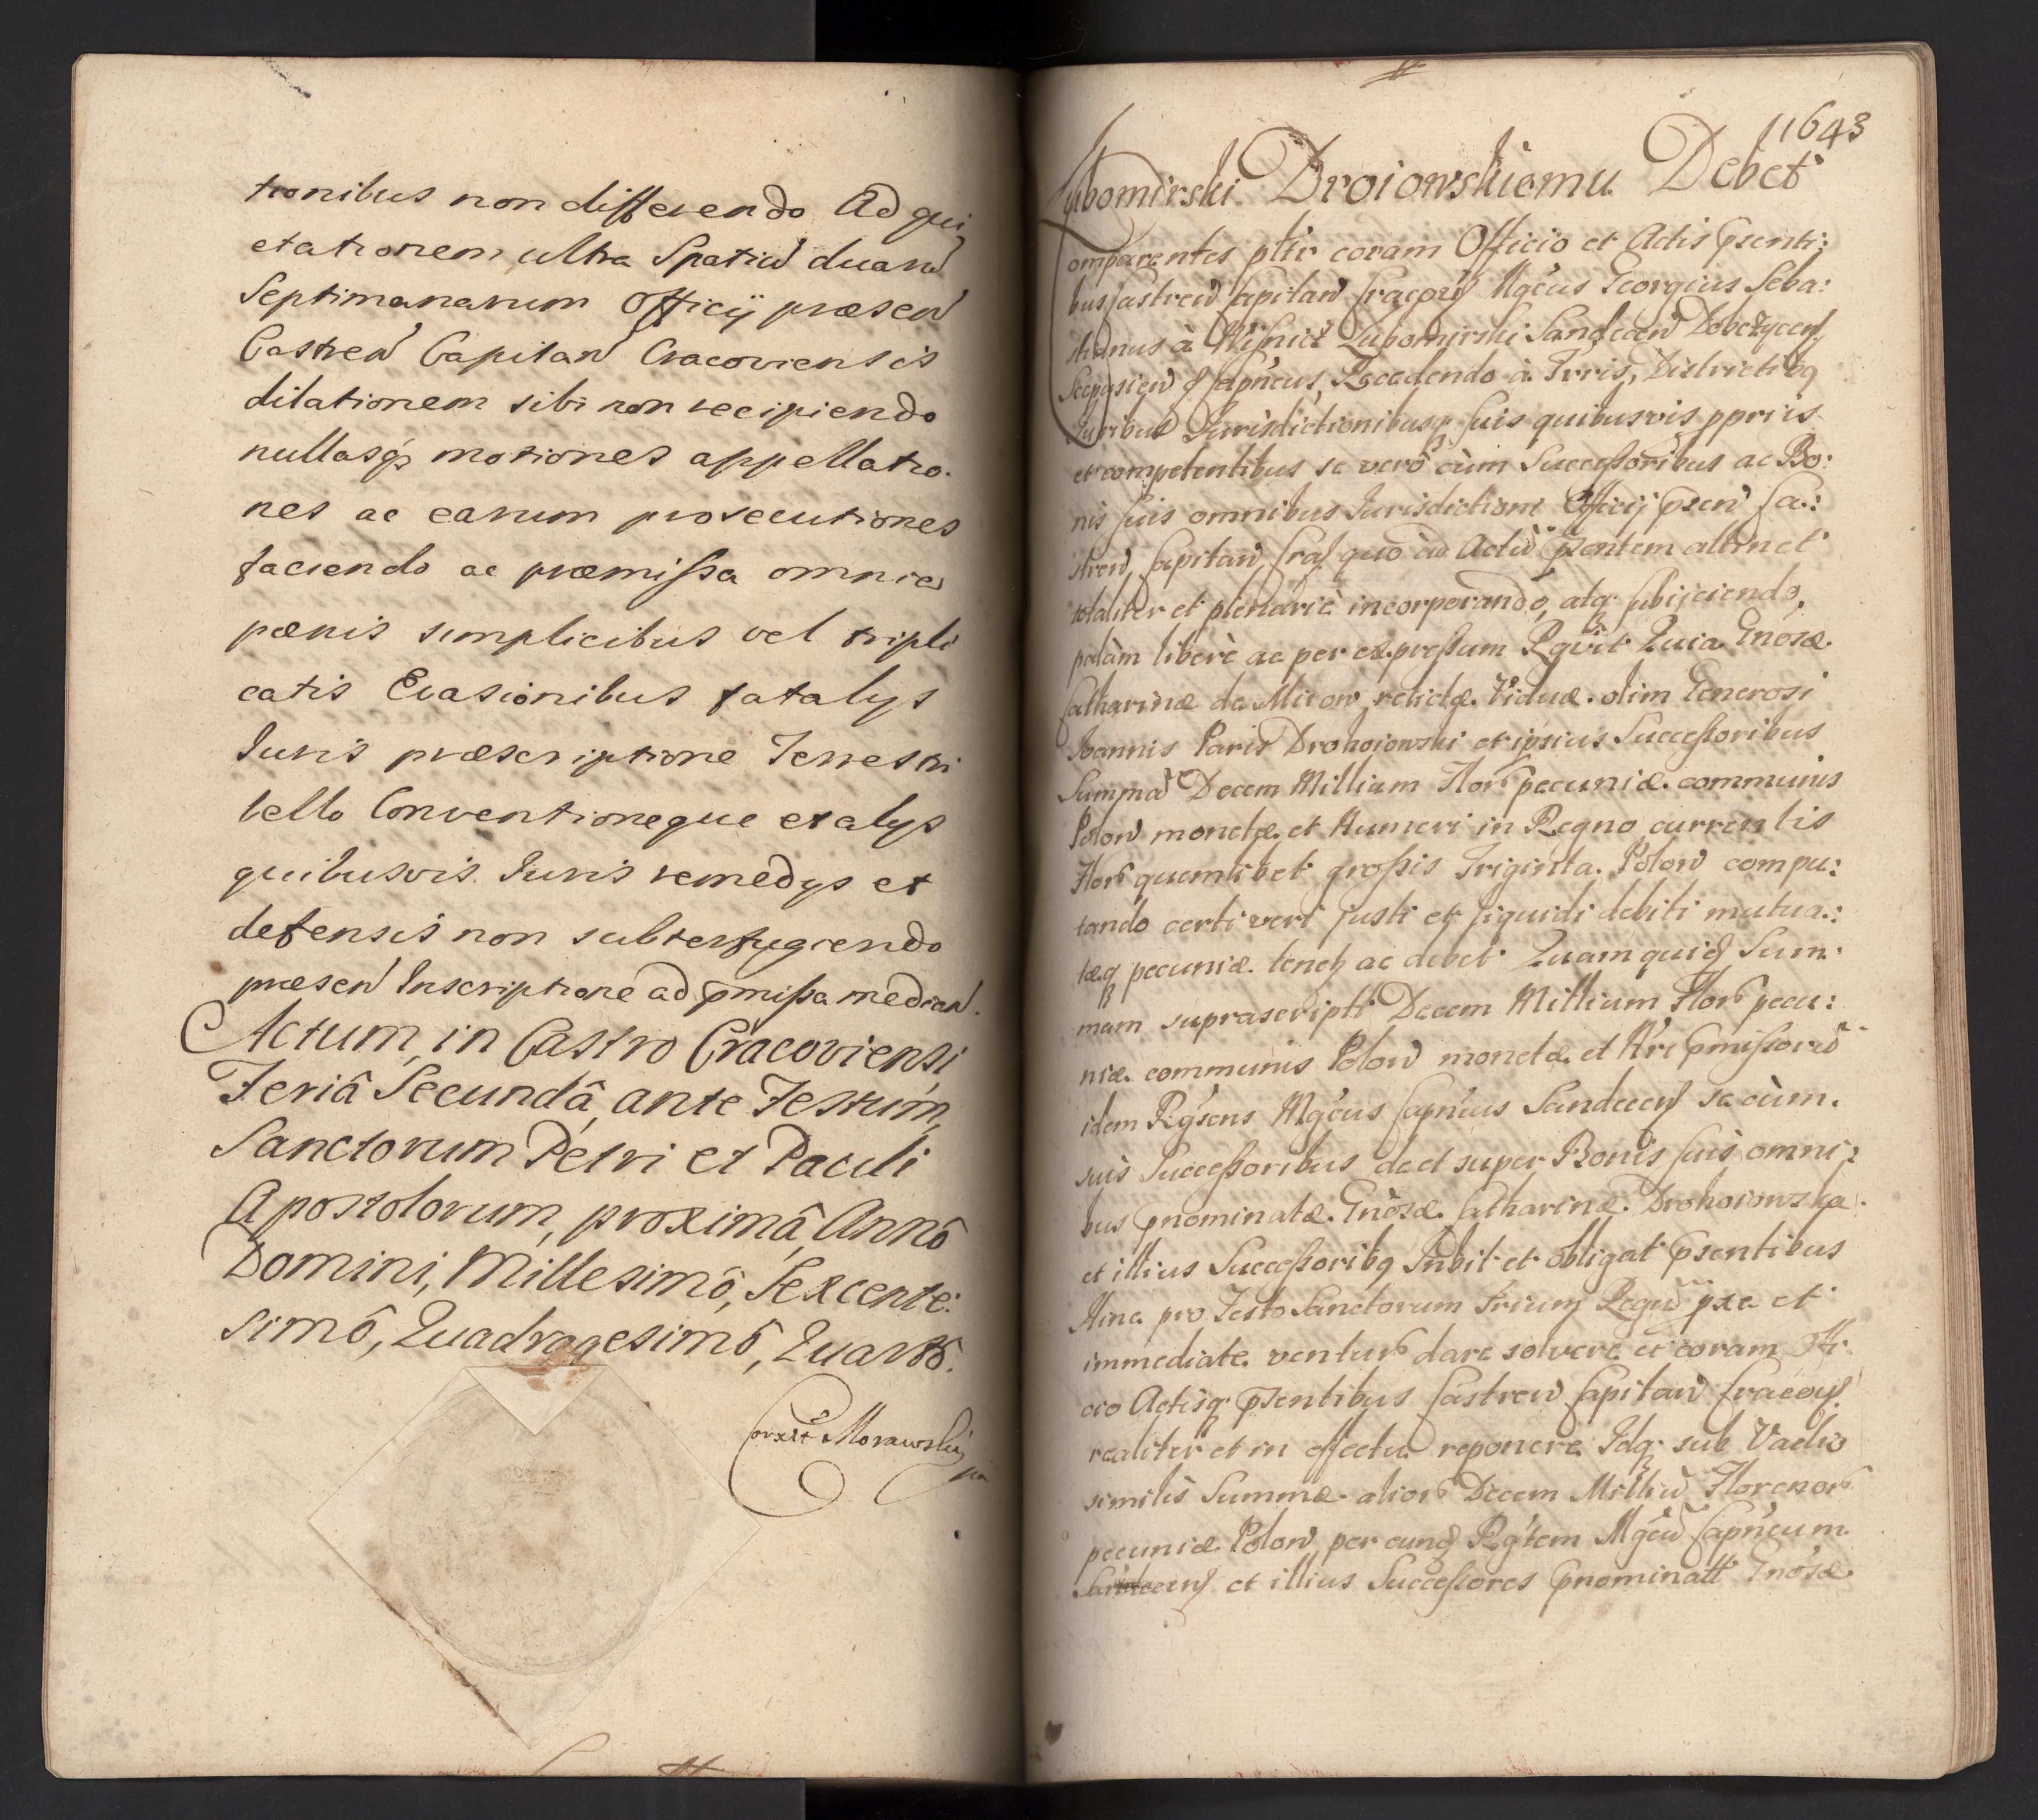 tionibus non differendo Ad qui
etationem ultra Spatiū duarū
Septimanarum Officij præsen
Castren Capitan Cracoviensis
dilationem sibi non recipiendo
nullasq3 motiones appellatio-
nes ac earum prosecutiones
faciendo ac præmissa omnia
pœnis simplicibus vel tripli
catis Evasionibus fatalijs
Iuris præscriptione Terrestri
bello Conventioneque et alijs
quibusvis Iuris remedijs et
defensis non subterfugiendo
præsen Inscriptione ad p̄missa median.
Actum, in Castro Cracoviensi
Feriâ Secundâ, ante Festum,
Sanctorum Petri et Pauli
Apostolorum, proximâ, Annô
Domini, Millesimô, Sexcente:
simô, Quadragesimô, Quartô.
Morawsky
1643
Lubomirski Droiowskiemu Debet
Comparentes pltr coram Officio et Actis p̄senti:
bus Castren Capitan Cracovien Mgcus Georgius Seba:
stianus à Wisnicz Lubomirski Sandecen Dobczycen
Scepusien Capneus, Recedendo à Trris, Districtibq
Iuribus Iurisdictionibusq suis quibusvis ppriis
et competentibus se verò cùm Successoribus ac Bo:
nis suis omnibus Iurisdictioni Officij p̄sen Ca:
stren Capitan Crac quo ad Actū p̄sentem attinet
totaliter et plenariè incorporando, atq subijciendo,
palàm liberè ac per expressum Rgvit Quia Gnosæ
Catharinæ de Mirow relictæ Viduæ olim Generosi
Ioannis Paris Drohoiowski et ipsius Successoribus
Summā Decem Millium Flor pecuniæ communis
Polon monetæ et Numeri in Regno currentis
Flor quemlibet grossis Triginta Polon compu:
tando certi veri justi et liquidi debiti mutua:
tæq pecuniæ tenet ac debet Quam quid Sum:
mam suprascriptt Decem Millium Flor pecu:
niæ communis Polon monetæ et Nri p̄missorū
idem Rgsens Mgcus Capneus Sandecen se cùm
suis Successoribus ac et super Bonis suis omni:
bus p̄nominatæ Gnosæ Catharinæ Drohoiowska
et illius Successoribq Inbit et obligat p̄sentibus
Hinc pro Festo Sanctorum Trium Regū pxe et
immediate ventur dare solvere et coram Offi:
cio Actisq p̄sentibus Castren Capitan Cracov
realiter et in effectu reponere Idq sub Vadio
similis Summæ alior Decem Milliū Florenor
pecuniæ Polon per eund Rgtem Mgcū Capneum
Sandecen et illius Successores p̄nominatt Gnosæ